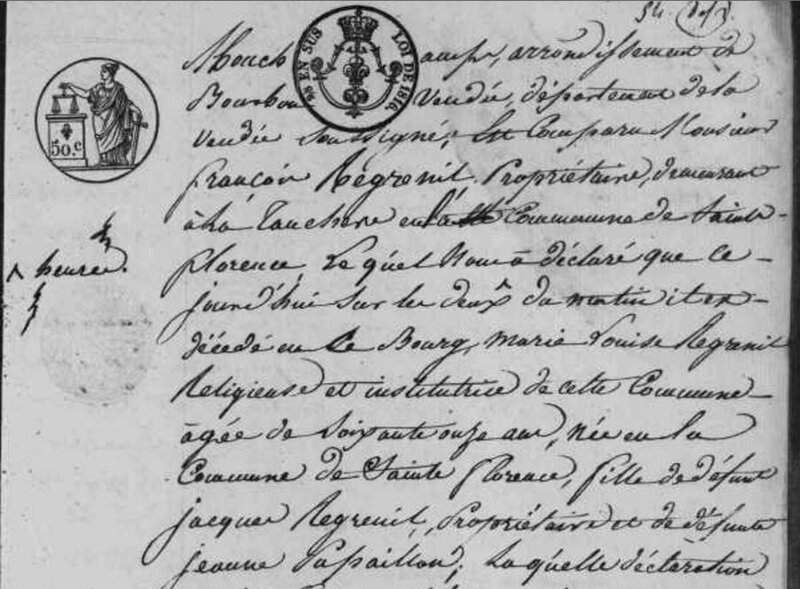 EN SUS LOI DE 1816.
50.c
Mouch amps, arrondissement de
Bourbon Vendée, département de la
Vendée soussigné, Est Comparu Monsieur
françois Regrenil, Propriétaire, demeurant
à La Tauchere en Commune de Sainte
florence, Le quel Nous à déclaré que ce
jourd'hui sur les deux ^ du matin il en
décédé en ce Bourg, marie Louise Regrenil
Religieuse et institutrice de cette Commune
âgée de Soixante onze ans, née en la
Commune de Sainte florence, fille de défunt
jacques Regrenil, Propriétaire et de défunte
jeanne Papaillon; Laquelle déclaration
^ heures.